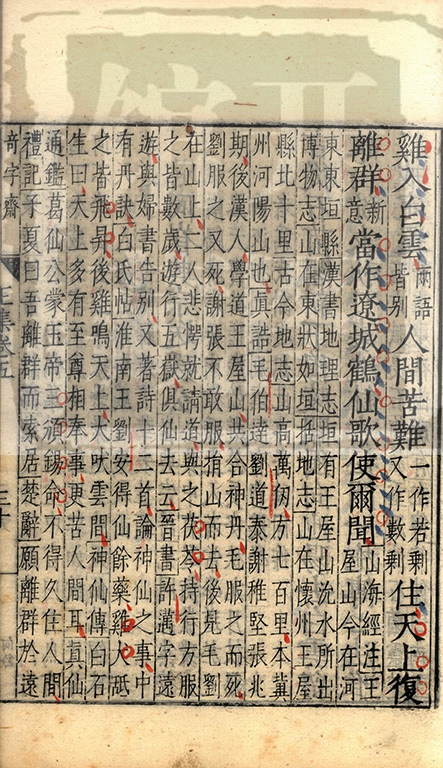 雞入白雲兩語皆别人間苦難一作若剩又作數剩住天上復
離群新意當作遼城鶴仙歌使爾聞山海經注王屋山今在河
東東垣縣漢書地理志垣有王屋山沇水所出
博物志山在東狀如垣括地志山在懷州王屋
縣北十里古今地志山高萬仞方七百里本冀
州河陽山也真誥毛伯達劉道泰謝稚堅張兆
期後漢人學道王屋山共合神丹毛服之而死
劉服之又死謝張不敢服捐山而去後見毛劉
在山上二人悲愕就請道與之茯苓持行方服
之皆數歲遊行五嶽俱仙去云晉書許邁字遠
遊與婦書告别又著詩十二首論神仙之事中
有丹訣白氏帖淮南王劉安得仙餘藥雞犬舐
之皆飛昇後雞鳴天上犬吠雲間神仙傳白石
生曰天上多有至尊相奉事更苦人間耳真仙
通鑑葛仙公蒙玉帝三頒錫命不得久住人間
禮記子夏曰吾離群而索居楚辭願離群於遠
奇字齋
集卷五
三十